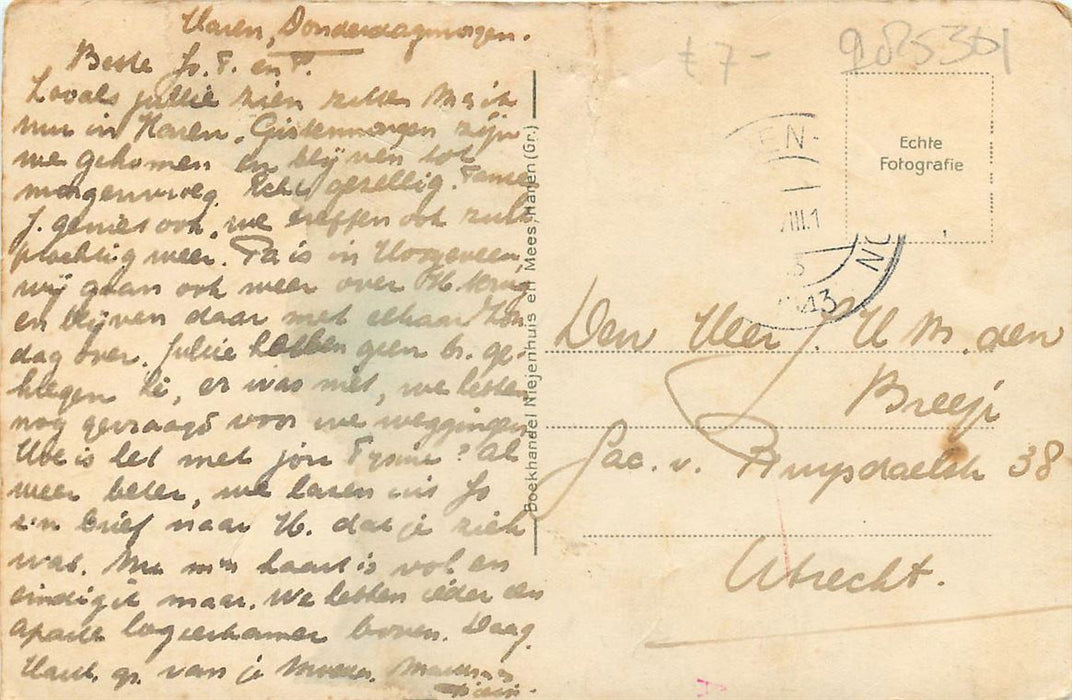 Haren, Donderdagmorgen.
Beste Jo. F. en P.
Zooals jullie zien zitten M en ik
nu in Haren. Gistermorgen zijn
we gekomen en blijven tot
morgenvroeg. Echt gezellig. Tante
J. geniet ook, we treffen ook zulk
prachtig weer. Pa is in Hoogeveen,
wij gaan ook weer over H. terug
en blijven daar met elkaar Zon
dag over. Jullie hebben geen br. ge-
kregen hè, er was niet, we hebben
nog gevraagd voor we weggingen
Hoe is het met jou ? Al
weer beter, we lazen uit Jo
z'n brief naar H. dat je ziek
was. Nu m'n kaart is vol en
eindig ik maar. We hebben ieder een
aparte logeerkamer boven. Daag.
Hart. gr. van je Moeder.
Boekhandel Niejenhuis en Mees, Haren (Gr.)
£ 7-
985301
Echte
Fotografie
EN-
VIII.1
13
NO
Den Heer J. H. M. den
Breejr
Jac. v. Ruysdaelstr 38
Utrecht.